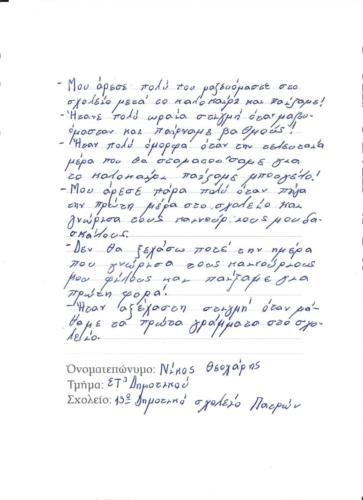 - Μου άρεσε πολύ που μαζευόμαστε στο
σχολείο μετά το καλοκαίρι και παίζαμε!
- Ήτανε πολύ ωραία στιγμή όταν μαζευ-
όμασταν και παίρναμε βαθμούς!
- Ήταν πολύ όμορφα όταν την τελευταία
μέρα που θα σταματούσαμε για
το καλοκαίρι παίξαμε μπουγέλο!
- Μου άρεσε πάρα πολύ όταν πήγα
την πρώτη μέρα στο σχολείο και
γνώρισα τους καινούριους μου δα-
σκάλους.
- Δεν θα ξεχάσω ποτέ την ημέρα
που γνώρισα τους καινούργιους
μου φίλους και παίξαμε για
πρώτη φορά!
- Ήταν αξέχαστη στιγμή όταν μά-
θαμε τα πρώτα γράμματα στο σχο-
λείο.
Ὀνοματεπώνυμο: Νίκος Θεοχάρης
Τμῆμα: ΣΤ'3 Δημοτικού
Σχολεῖο: 13ο Δημοτικό σχολείο Πατρών